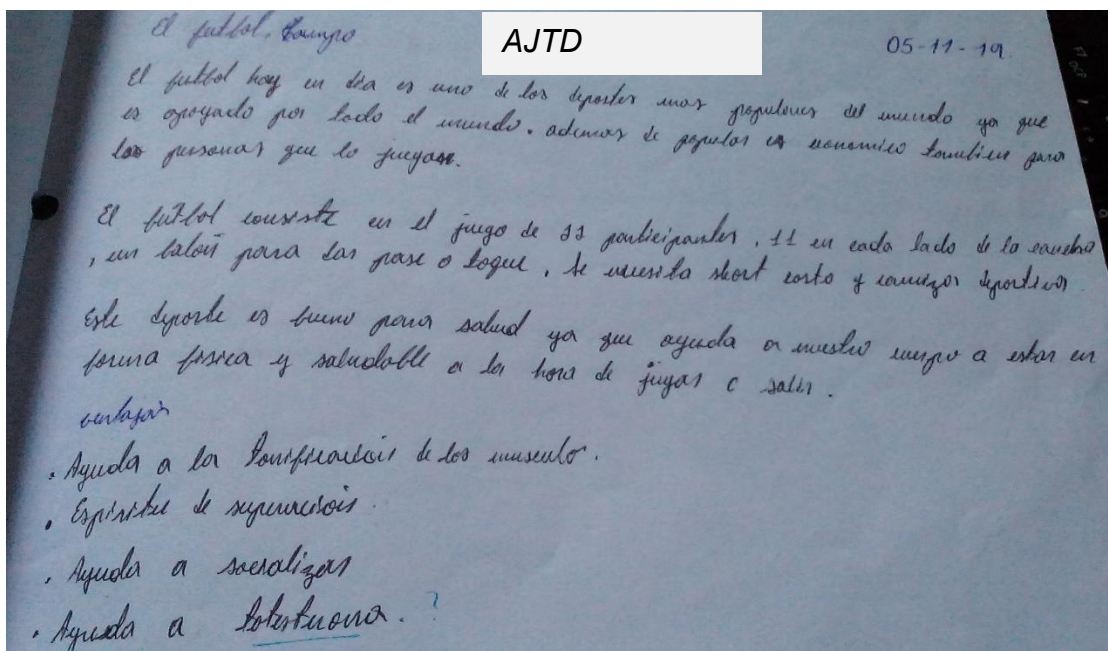 El futbol, tiempo
AJTD
05-11-19
El futbol hoy en dia es uno de los deportes mas populares del mundo ya que
es apoyado por todo el mundo. ademas de popular es economico tambien para
las personas que lo juegan.
El futbol consiste en el juego de participantes, 11 en cada lado de la cancha
, un balon para das pase o toque, se necesita short corto y camizas deportivas
Este deporte es bueno para salud ya que ayuda a nuestro cuerpo a estar en
forma física y saludable a la hora de jugar o salir.
ventajas
. Ayuda a la tonificacion de los musculo.
. Espiritu de superacion.
. Ayuda a socializar
. Ayuda a totesterona. ?